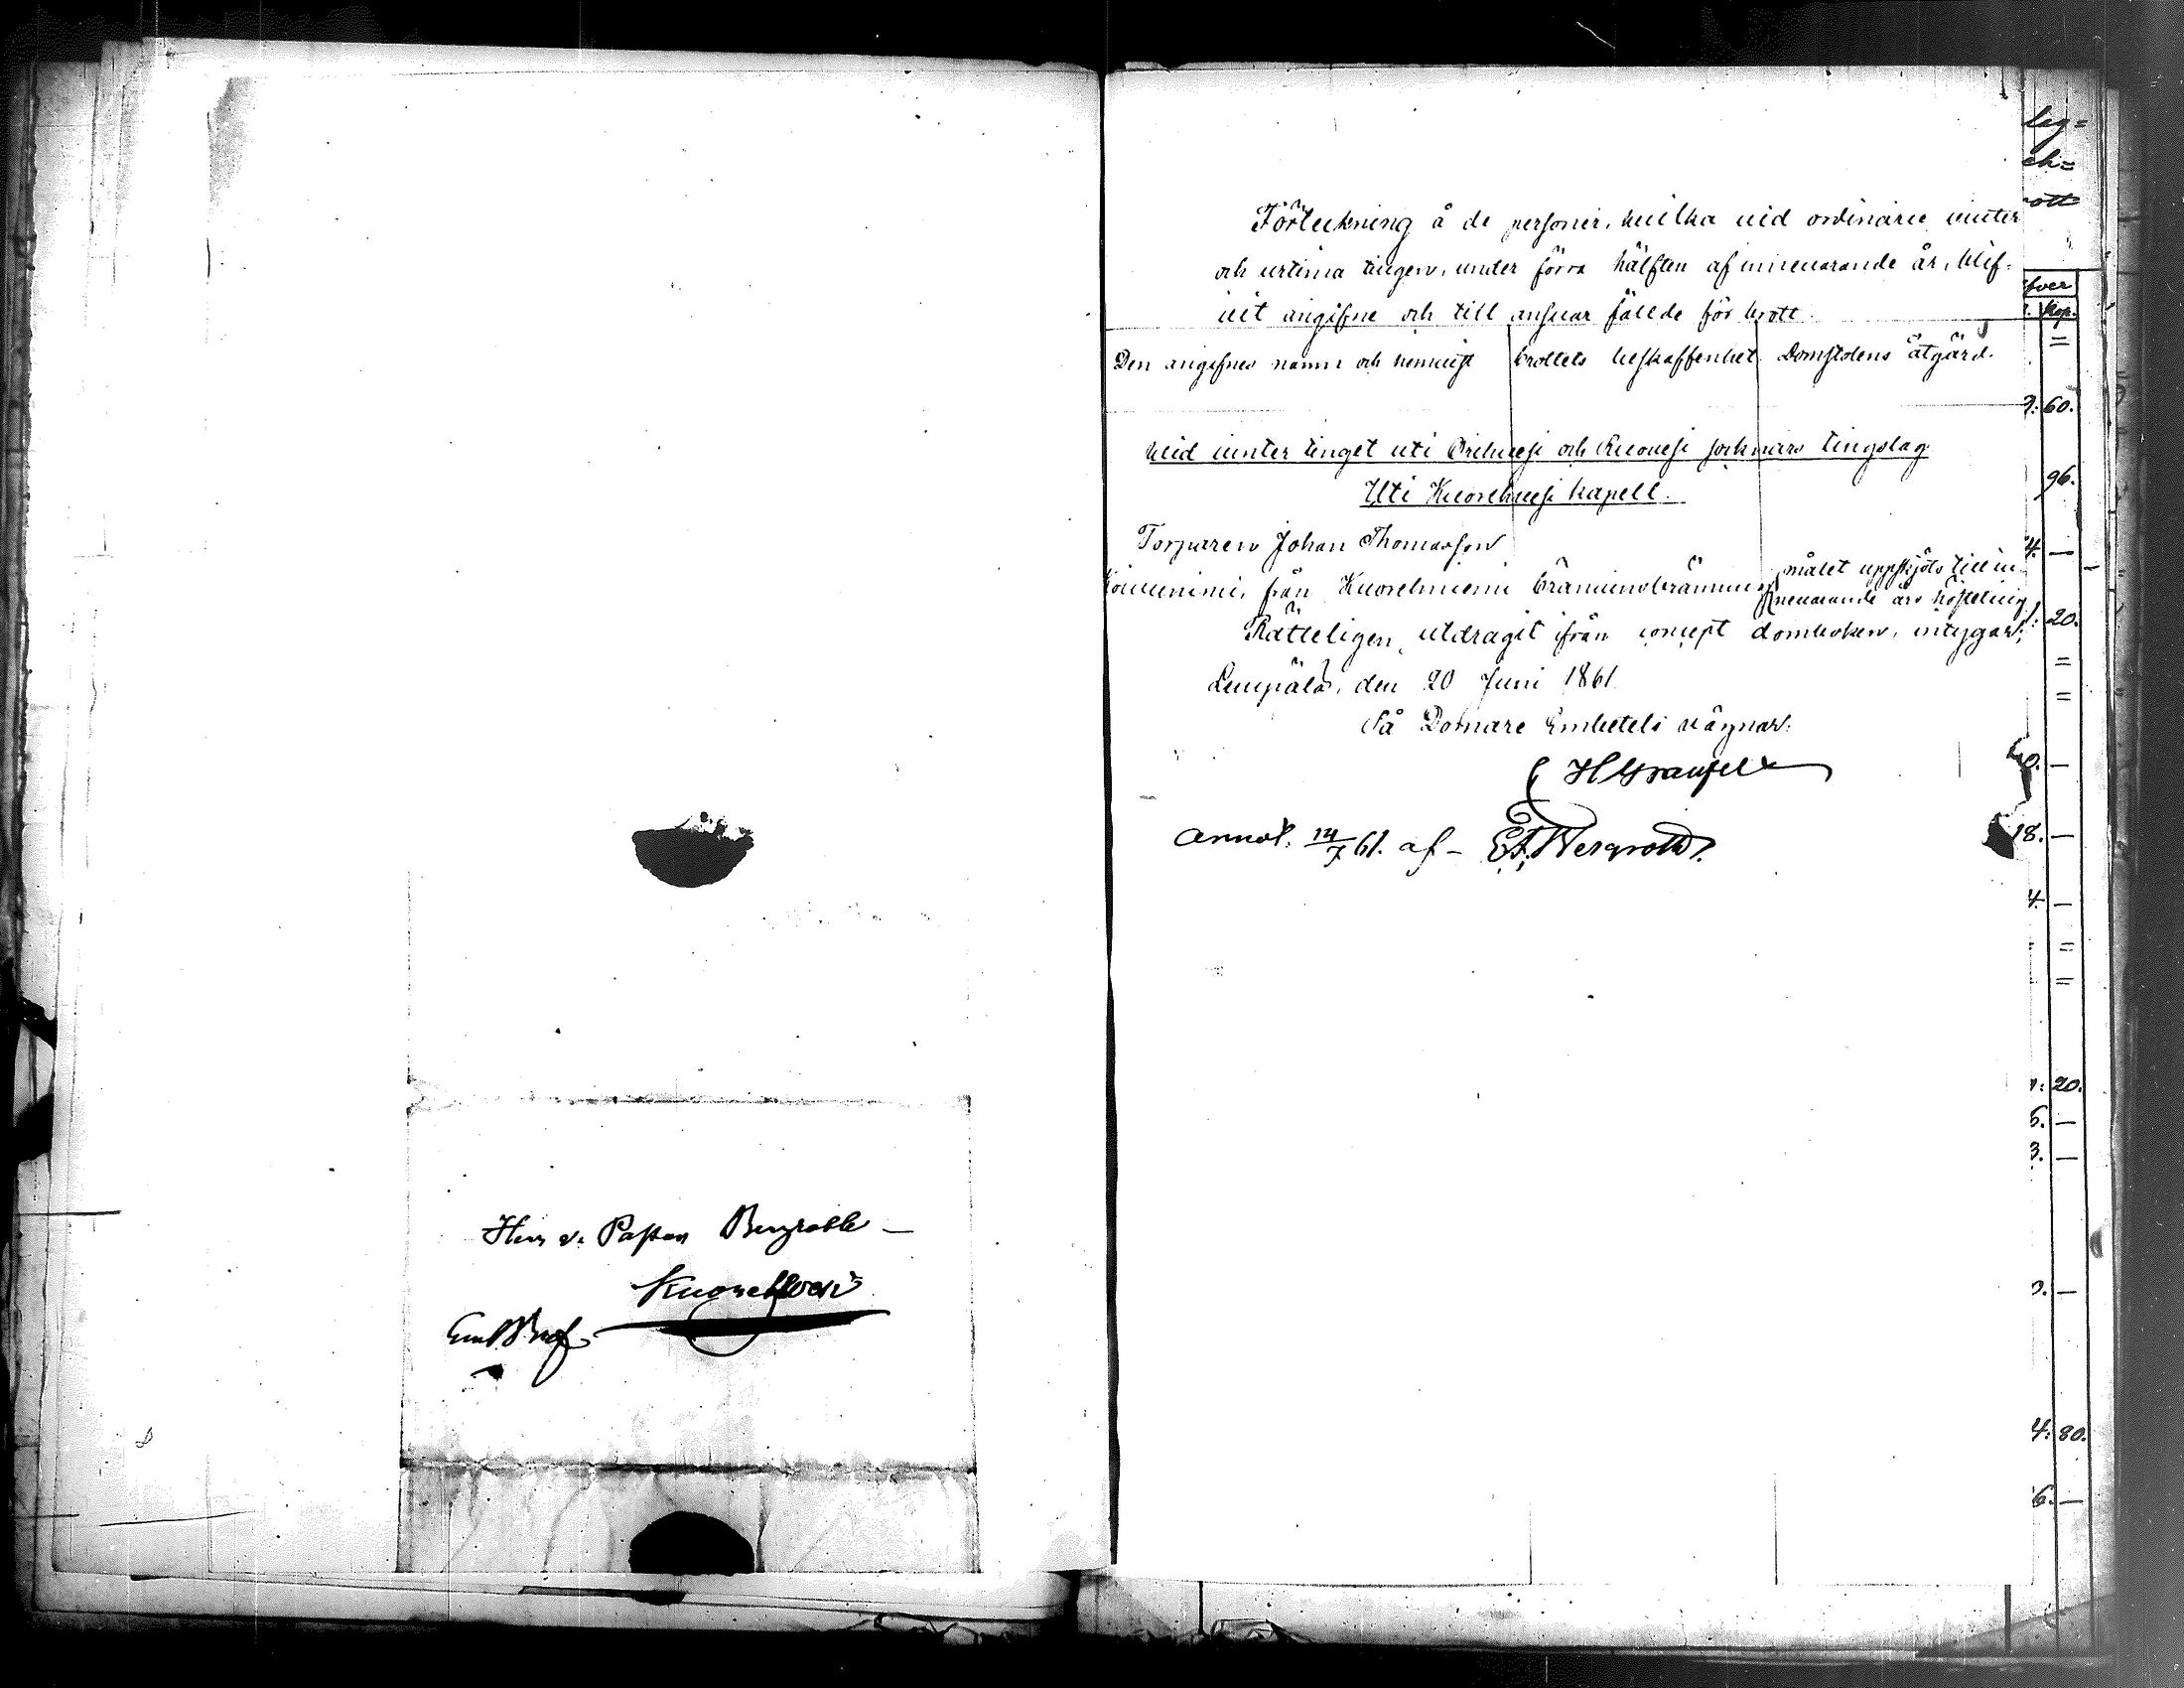 Herr v. Pastor Bergroth
Kuorehvesi
Emb. Bref
Förteckning å de personer, hvilka vid ordinarie vinter
och urtima tingen, under förra hälften af innevarande år, blif-
vit angifne och till ansvar fällde för brott.
Den angifnes namn och hemvist brottets beskaffenhet Domstolens åtgärd.
Vid vinter tinget uti Orihvesi och Ruovesi socknars tingslag
Uti Kuorehvesi kapell.
Torparen Johan Thomasson
från Kuorehniemi bränvinsbränning målet uppskjöts till in-
nevarande års hösteting
Rätteligen utdragit ifrån concept domboken, intygar;
Lempälä, den 20 Juni 1861
På Domare Embetets vägnar:
Annot. 14/7 61. af E. A. Bergroth.
lag=
ch=
ott
fver
Kop.
60.
96.
4. —
20.
0. —
18. —
4. —
20.
5. —
3. —
4: 80.
6. —